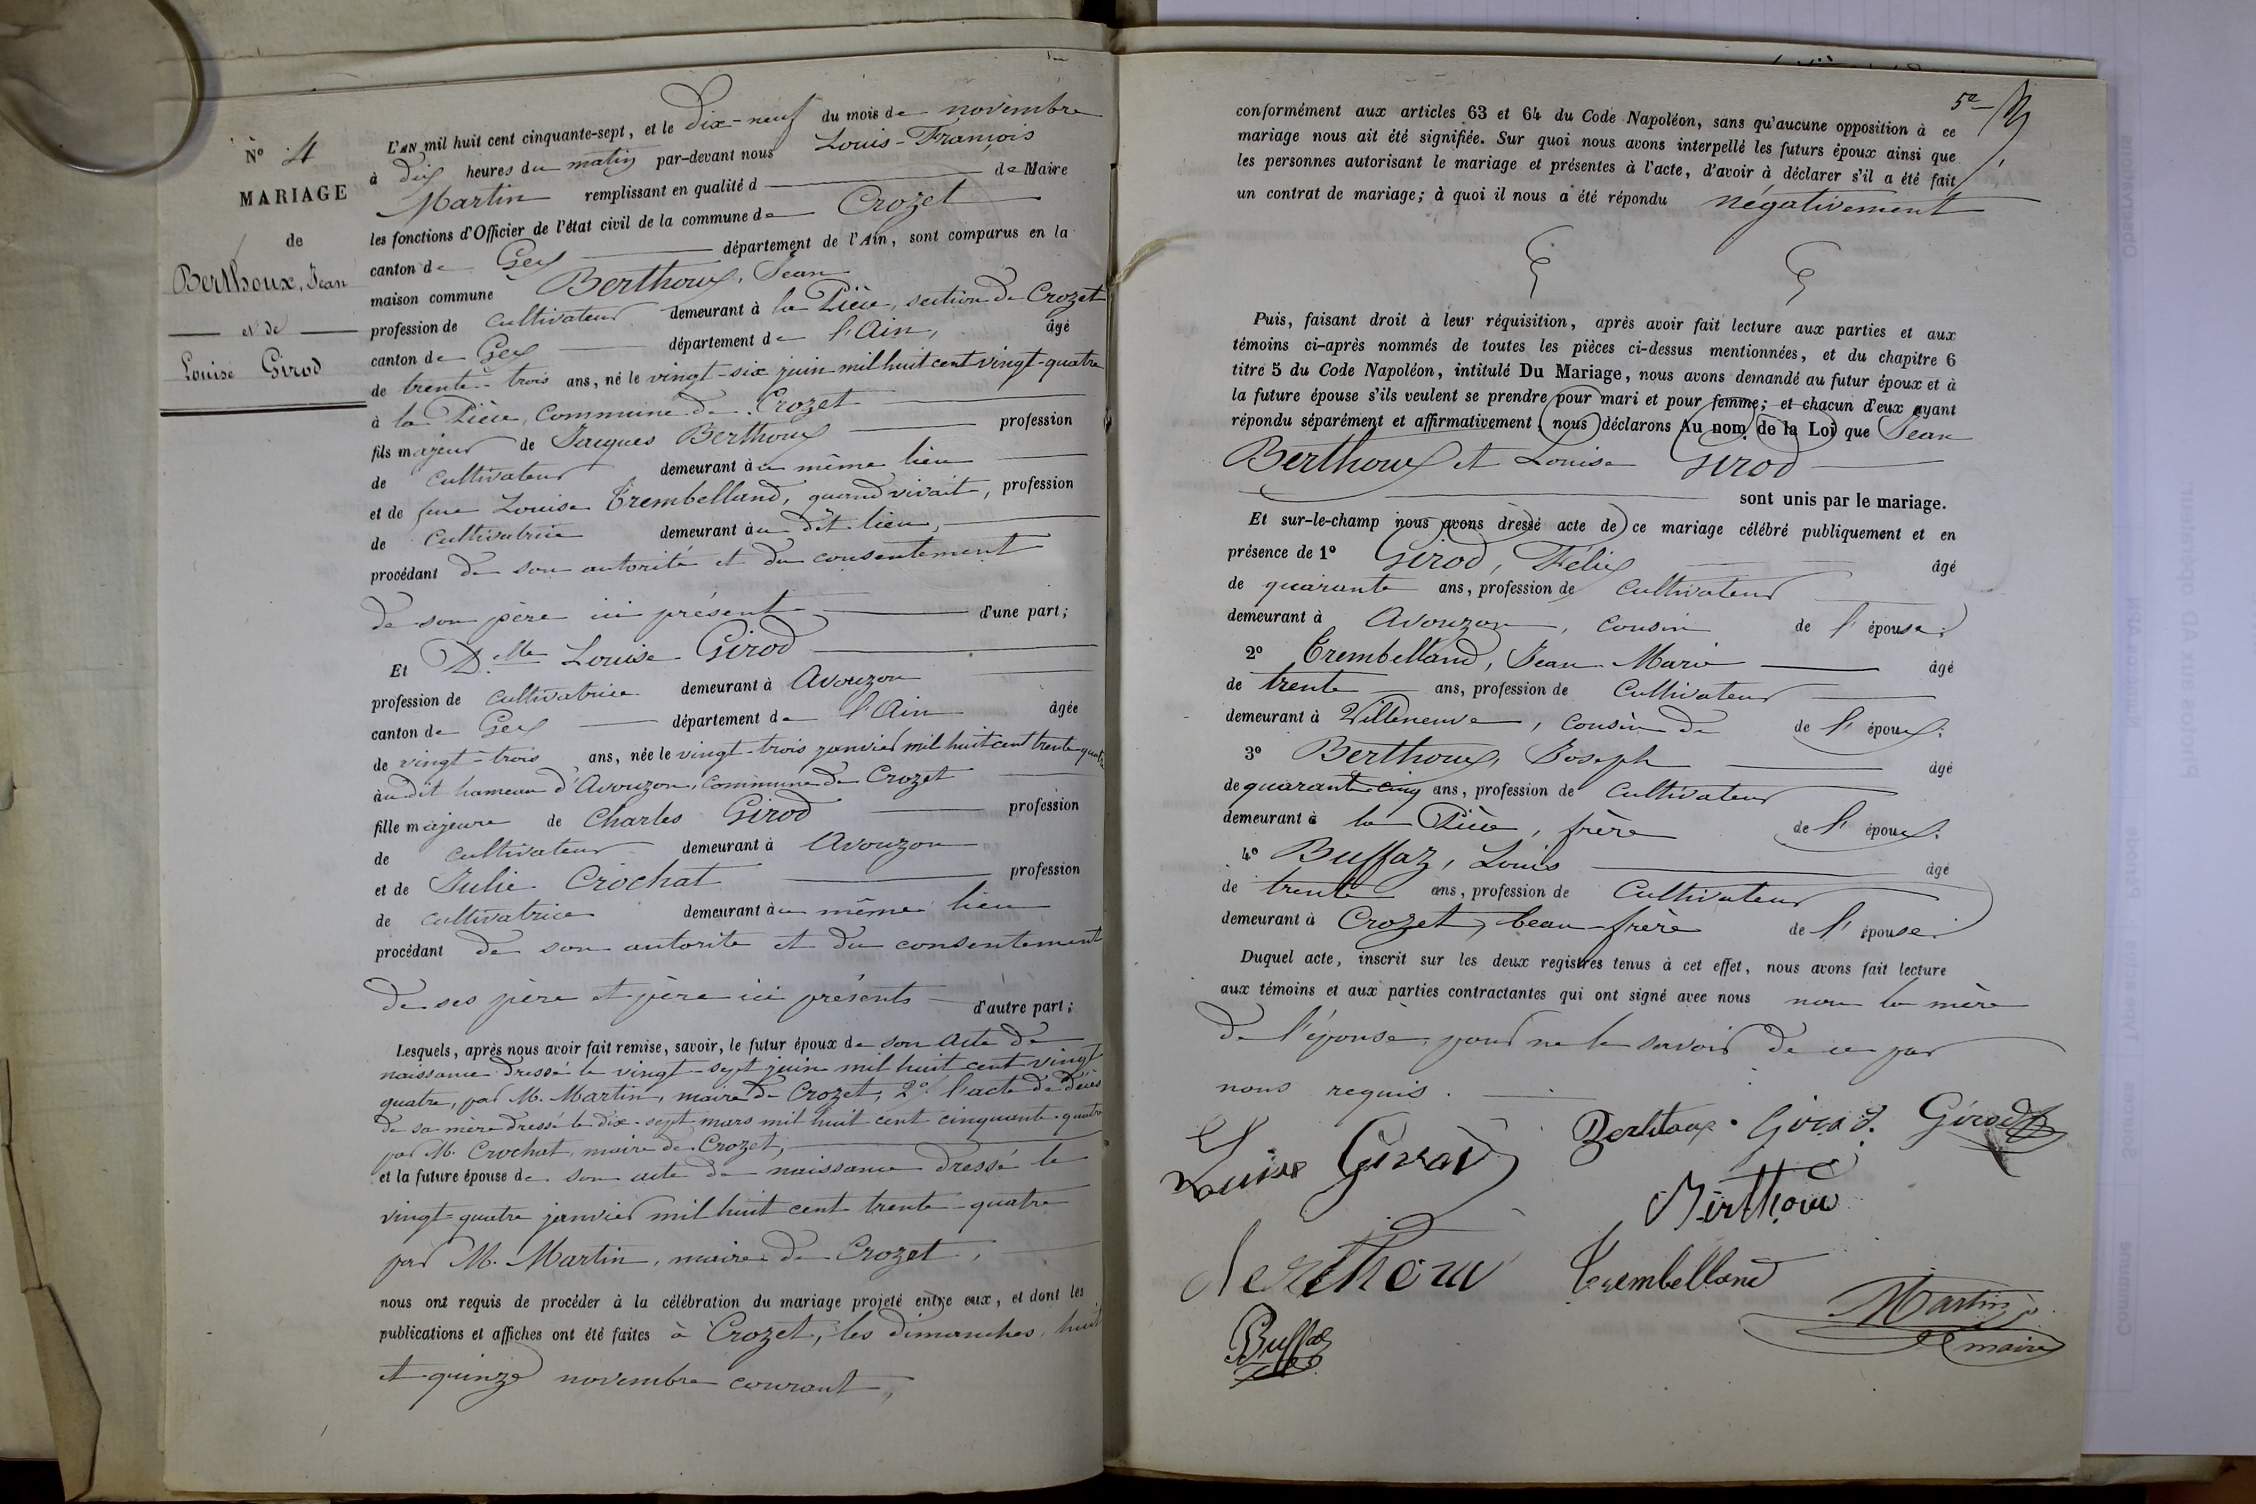 N° 4
MARIAGE
de
Berthoux, Jean
et de
Louise Girod
L'AN mil huit cent cinquante-sept, et le dix-neuf du mois de novembre
à dix heures du matin par-devant nous Louis-François
Martin remplissant en qualité de Maire
les fonctions d'Officier de l'état civil de la commune de Crozet
canton de Gex département de l'Ain, sont comparus en la
maison commune Berthoux, Jean
profession de cultivateur demeurant à la Pièce, section de Crozet
canton de Gex département de l'Ain, âgé
de trente-trois ans, né le vingt-six juin mil huit cent vingt-quatre
à la Pièce, commune de Crozet
fils majeur de Jacques Berthoux profession
de cultivateur demeurant au même lieu
et de feue Louise Trembelland, quand vivait, profession
de cultivatrice demeurant au dit lieu,
procédant de son autorité et du consentement
de son père ici présent d'une part;
Et D.elle Louise Girod
profession de cultivatrice demeurant à Avouzon
canton de Gex département de l'Ain âgée
de vingt-trois ans, née le vingt-trois janvier mil huit cent trente-quatre
au dit hameau d'Avouzon, commune de Crozet
fille majeure de Charles Girod profession
de cultivateur demeurant à Avouzon
et de Julie Crochat profession
de cultivatrice demeurant au même lieu
procédant de son autorité et du consentement
de ses père et père ici présents d'autre part;
Lesquels, après nous avoir fait remise, savoir, le futur époux de son acte de
naissance dressé le vingt-sept juin mil huit cent vingt
quatre, par M. Martin, maire de Crozet, 2° l'acte de décès
de sa mère dressé le dix-sept mars mil huit cent cinquante-quatre
par M. Crochat, maire de Crozet,
et la future épouse de son acte de naissance dressé le
vingt-quatre janvier mil huit cent trente-quatre
par M. Martin, maire de Crozet,
nous ont requis de procéder à la célébration du mariage projeté entre eux, et dont les
publications et affiches ont été faites à Crozet, les dimanches huit
et quinze novembre courant,
5e
conformément aux articles 63 et 64 du Code Napoléon, sans qu'aucune opposition à ce
mariage nous ait été signifiée. Sur quoi nous avons interpellé les futurs époux ainsi que
les personnes autorisant le mariage et présentes à l'acte, d'avoir à déclarer s'il a été fait
un contrat de mariage; à quoi il nous a été répondu négativement
Puis, faisant droit à leur réquisition, après avoir fait lecture aux parties et aux
témoins ci-après nommés de toutes les pièces ci-dessus mentionnées, et du chapitre 6
titre 5 du Code Napoléon, intitulé Du Mariage, nous avons demandé au futur époux et à
la future épouse s'ils veulent se prendre pour mari et pour femme; et chacun d'eux ayant
répondu séparément et affirmativement, nous déclarons Au nom de la Loi que Jean
Berthoux et Louise Girod
sont unis par le mariage.
Et sur-le-champ nous avons dressé acte de ce mariage célébré publiquement et en
présence de 1° Girod, Félix âgé
de quarante ans, profession de cultivateur
demeurant à Avouzon, cousin de l'épouse;
2° Trembelland, Jean Marie âgé
de trente ans, profession de cultivateur
demeurant à Villeneuve, cousin de de l'époux;
3° Berthoux, Joseph âgé
de quarante-cinq ans, profession de cultivateur
demeurant à la Pièce, frère de l'époux;
4° Buffaz, Louis âgé
de trente ans, profession de Cultivateur
demeurant à Crozet, beau-frère de l'épouse.
Duquel acte, inscrit sur les deux registres tenus à cet effet, nous avons fait lecture
aux témoins et aux parties contractantes qui ont signé avec nous non la mère
de l'épouse, pour ne le savoir de ce par
nous requis.
Louise Girod Berthoux Girod. Girod
Berthoux
Berthoux Trembelland
Martin
maire
Buffaz